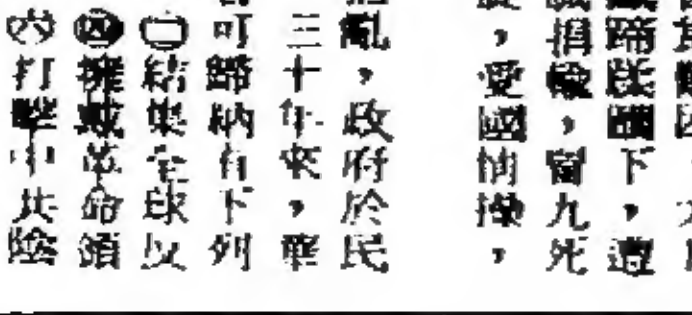 蹄蹂躪下，遭
捐輸，當九死
，愛國情操，
亂，政府於民
三十年來，華
可歸納有下列
㊁結集全球反
㊃擁戴革命領
㊅打擊中共陰